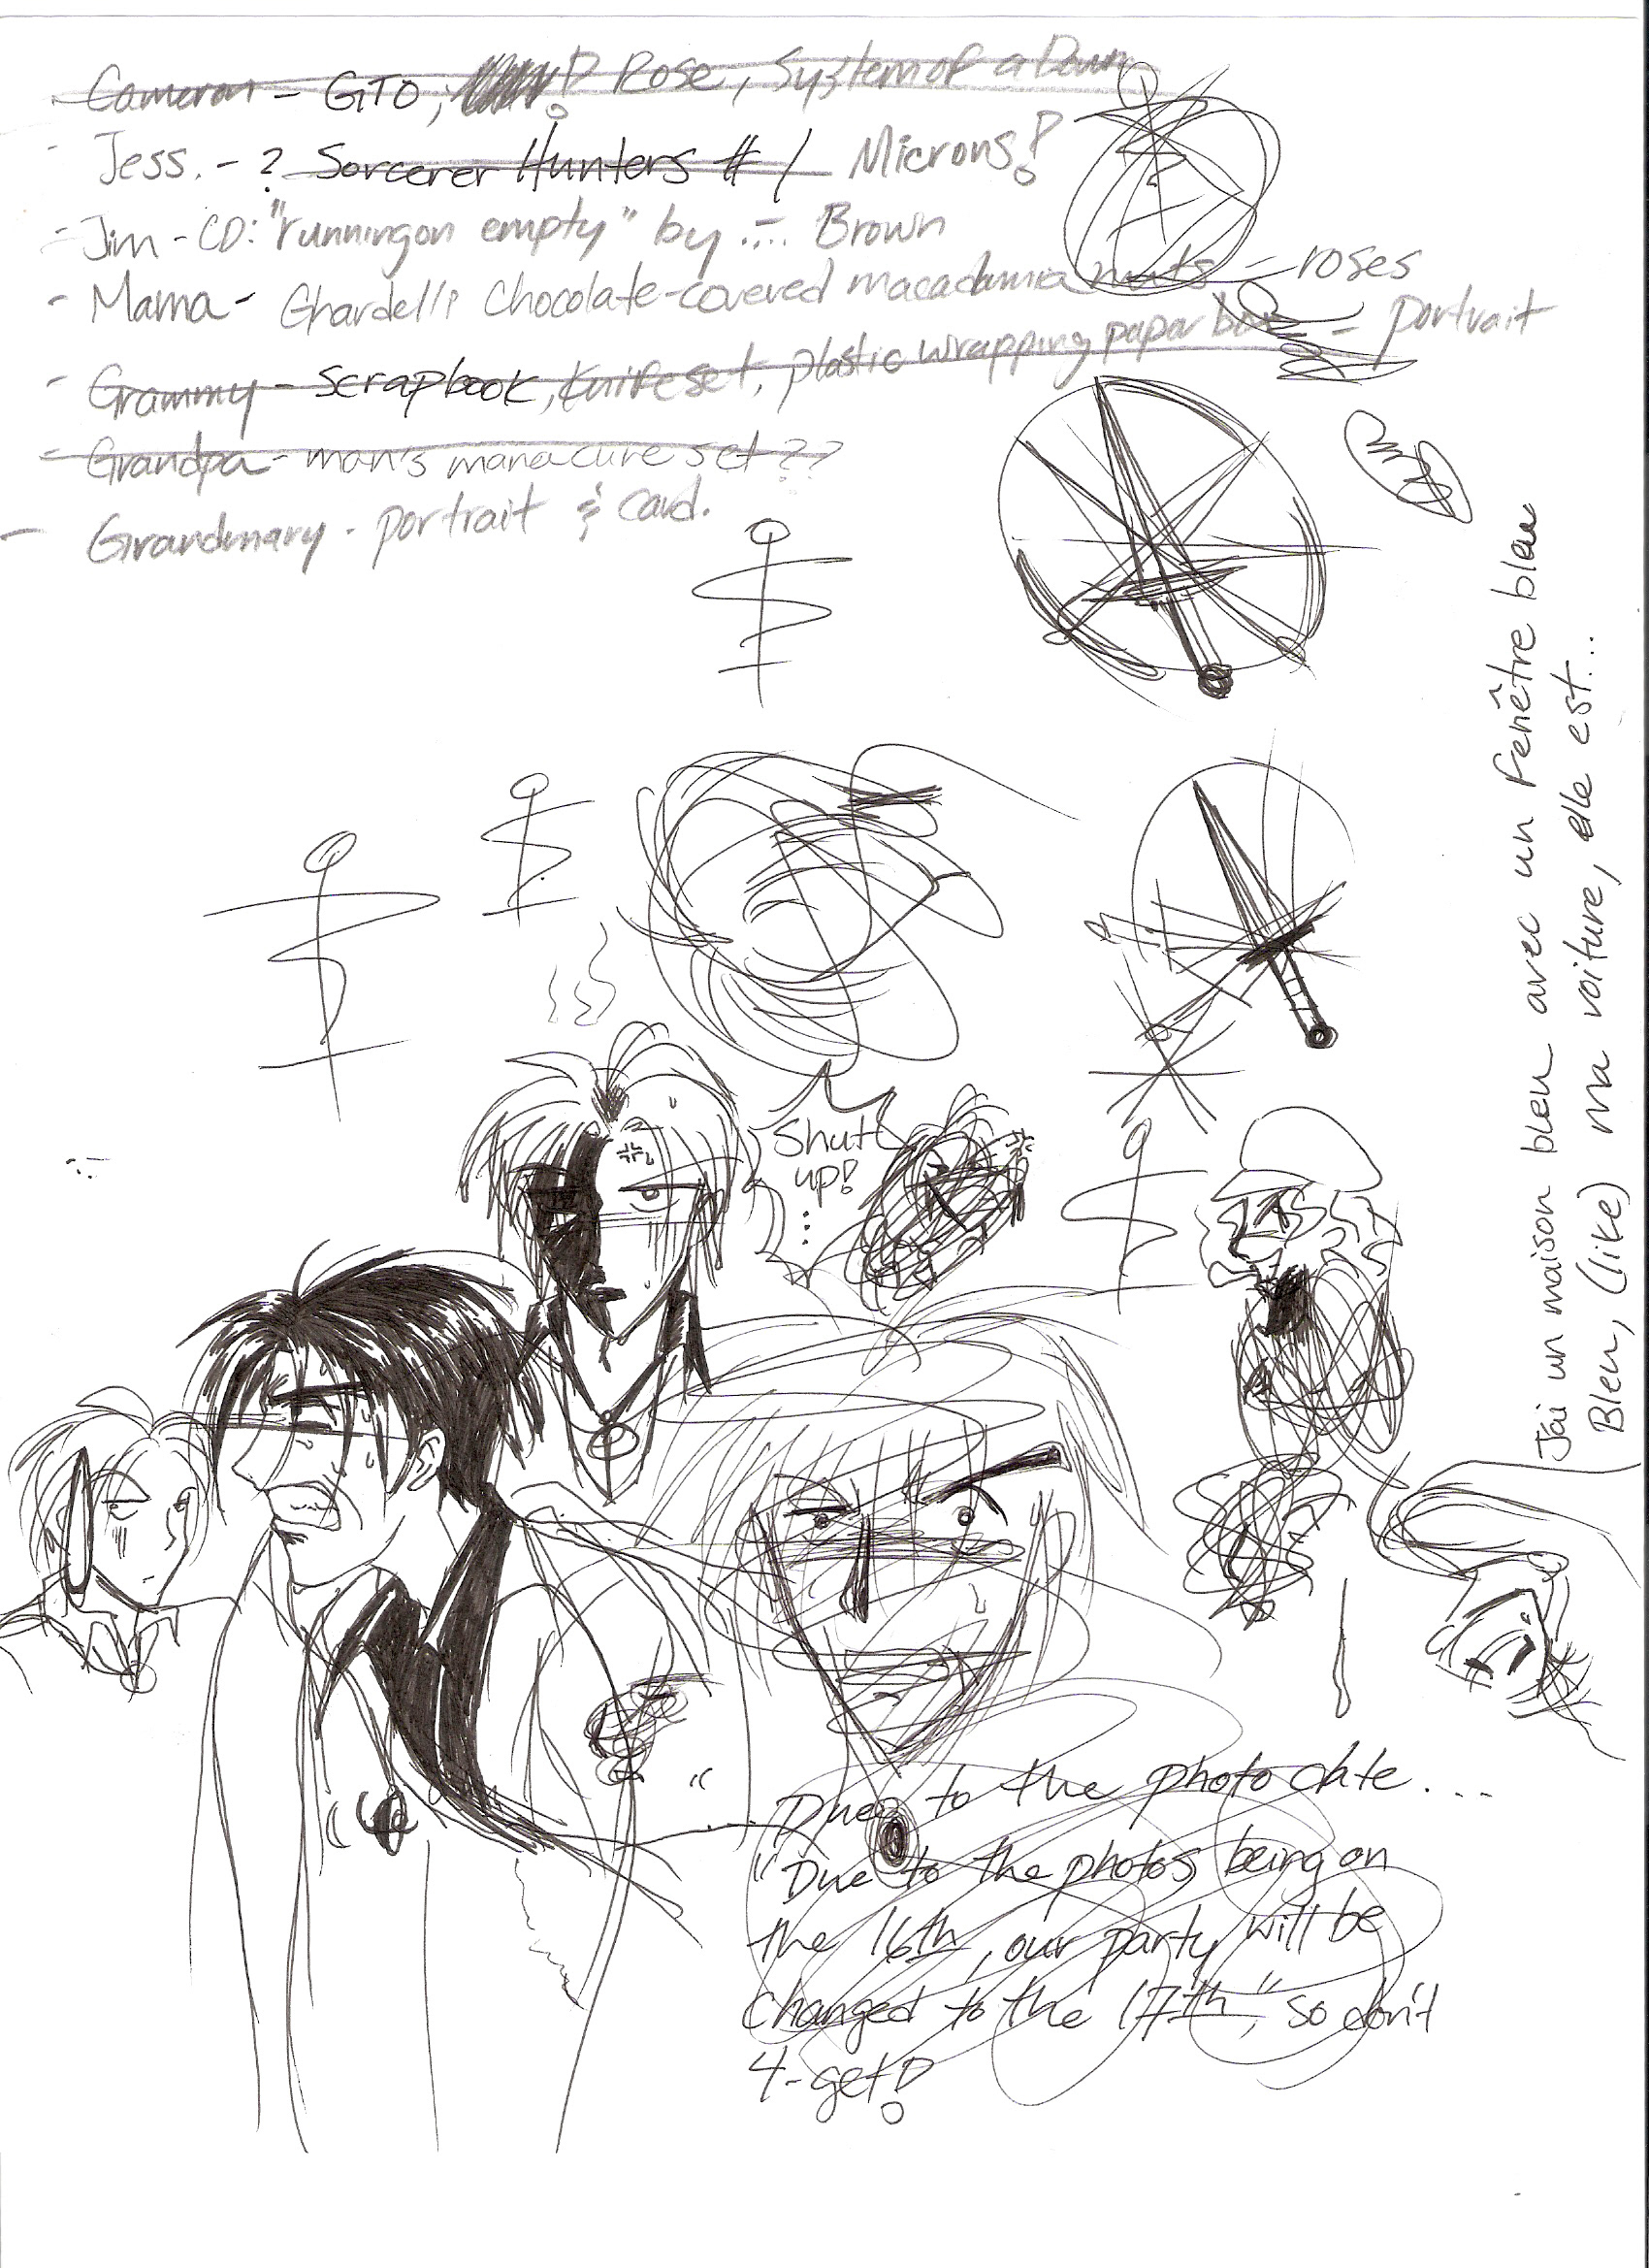 Cameron - GTO, ! Rose, System of a Down
- Jess. - ? Sorcerer Hunters #1 Microns!
- Jim - CD: "running on empty" by .... Brown
- Mama - Ghardelli Chocolate-covered macadamia nuts - roses
- Grammy - scrapbook, knife set, plastic wrapping paper box - portrait
- Grandpa - man's manacure set ??
- Grandmary - portrait & card.
J'ai un maison bleu avec un fenêtre bleu
Bleu, (like) ma voiture, elle est...
Shutt
up!
...
"
Due to the photo date....
"Due to the photos being on
the 16th, our party will be
changed to the 17th", so don't
4-get!